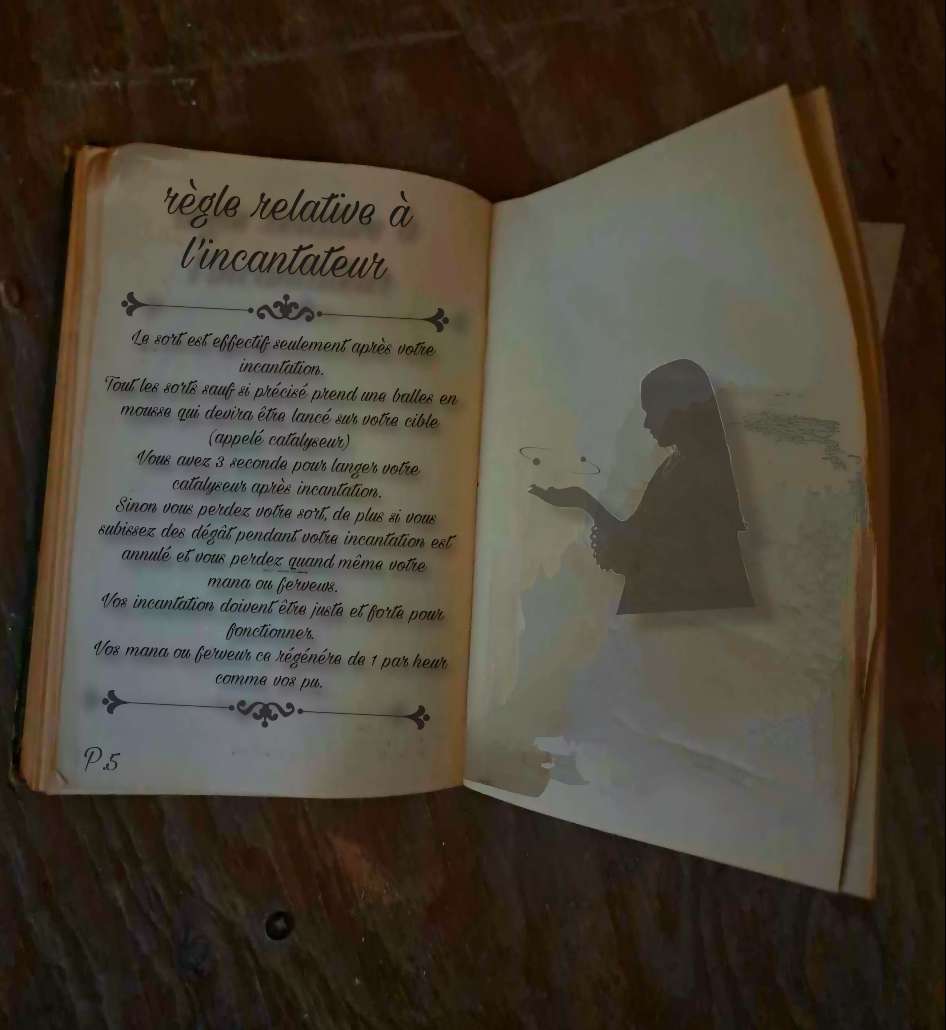 règle relative à
l'incantateur
Le sort est effectif seulement après votre
incantation.
Tout les sorts sauf si précisé prend une balles en
mousse qui devira être lancé sur votre cible
(appelé catalyseur)
Vous avez 3 seconde pour langer votre
catalyseur après incantation.
Sinon vous perdez votre sort, de plus si vous
subissez des dégât pendant votre incantation est
annulé et vous perdez quand même votre
mana ou ferveur.
Vos incantation doivent être juste et forte pour
fonctionner.
Vos mana ou ferveur ce régénére de 1 par heur
comme vos pu.
P.5